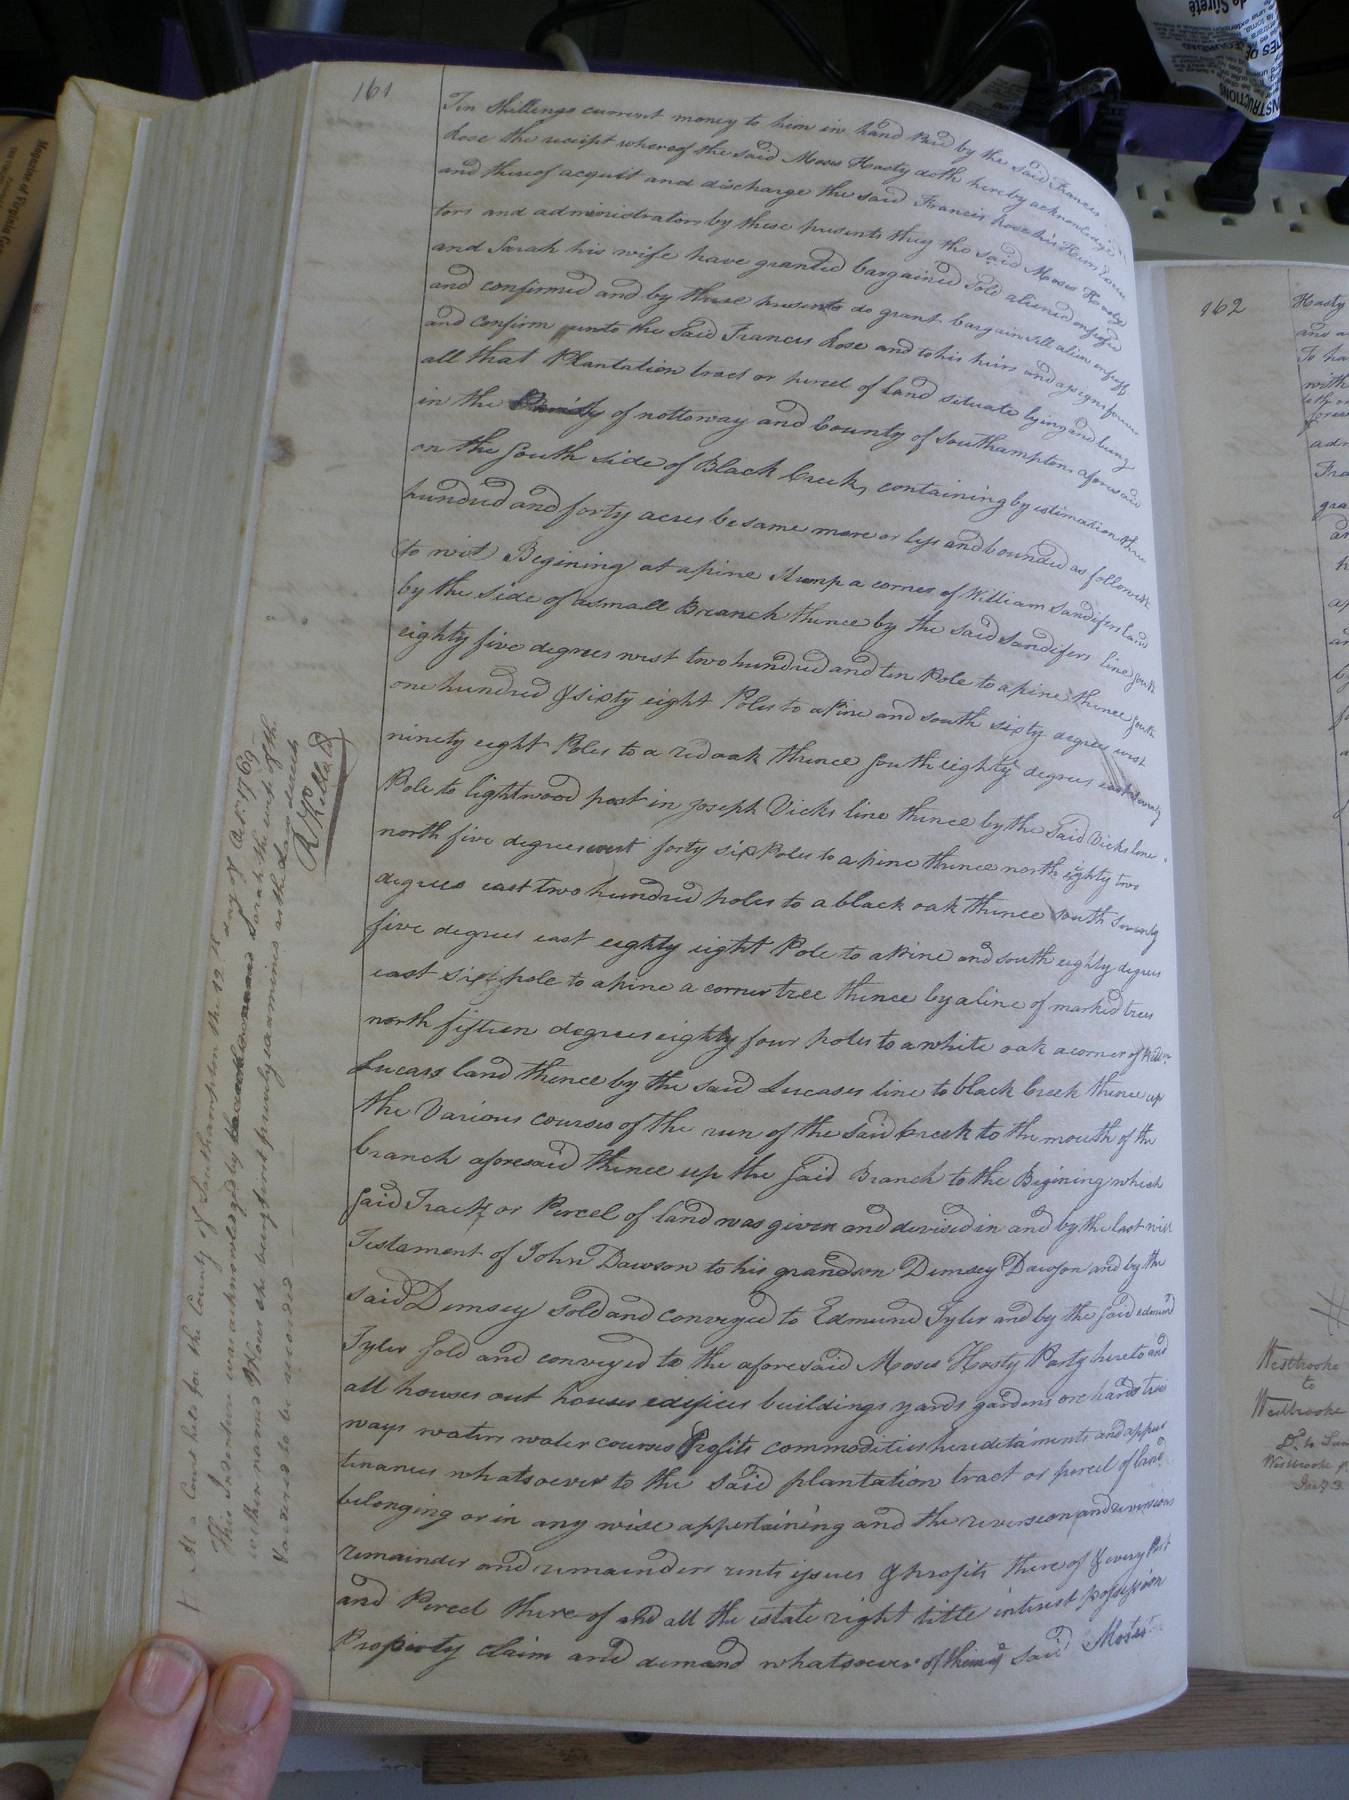 161
Ten Shillings current money to him in hand Paid by the said Francis
Rose the receipt whereof the said Moses Hasty doth hereby acknowledge
and thereof acquitt and discharge the said Francis Rose his Heirs Execu
tors and administrators by these presents they the said Moses Hasty
and Sarah his wife have granted bargained Sold aliened enfeofed
and confirmed and by these presents do grant bargain sell alien enfeoff
and confirm unto the Said Francis Rose and to his heirs and assigns forever
all that Plantation tract or percel of Land situate lying and being
in the of nottoway and County of Southampton aforesaid
on the South side of Black Creek, containing by estimation three
hundred and forty acres be same more or less and bounded as followeth
to wit Begining at a pine Stump a corner of William Sandifers land
by the side of a small Branch thence by the said Sandifers line South
eighty five degrees west two hundred and ten Pole to a pine thence South
one hundred & sixty eight Poles to a Pine and south sixty degrees west
ninety eight Poles to a red oak thence South eighty degrees east
Pole to lightwood post in Joseph Vicks line thence by the Said Vicks line
north five degrees west forty six Poles to a pine thence north eighty two
degrees east two hundred poles to a black oak thence South seventy
five degrees east eighty eight Pole to a Pine and south eighty degrees
east sixty pole to a pine a corner tree thence by a line of marked trees
north fifteen degrees eighty four poles to a white oak a corner of Will.m
Lucass land thence by the said Lucases line to black Creek thence up
the Various courses of the run of the said Creek to the mouth of the
branch aforesaid thence up the said Branch to the Begining which
said Track or Percel of land was given and devised in and by the last will
Testament of John Dawson to his grandson Demsey Dawson and by the
said Demsey sold and conveyed to Edmund Tyler and by the said edmund
Tyler Sold and conveyed to the aforesaid Moses Hasty Party hereto and
all houses out houses edifices buildings yards gardens orchards trees
ways waters water courses Profits commodities hereditaments and appur
tinances whatsoever to the said plantation tract or percel of land
belonging or in any wise appertaining and the reversion and reversions
remainder and remainders rents issues & profits there of & every Part
and Percel there of and all the estate right title interest possession
Property claim and demand whatsoever of them said Moses
+ At a Court held for the County of Southampton the 12th day of Oct. 1769
This Indenture was acknowledged by Sarah the wife of the
within named Moses she being first privily examined as the Law directs
& ordered to be recorded
R Kello CD
162
Hasty
and a
To ha
with
adm
Fra
gra
Westbrooke
to
Westbrooke